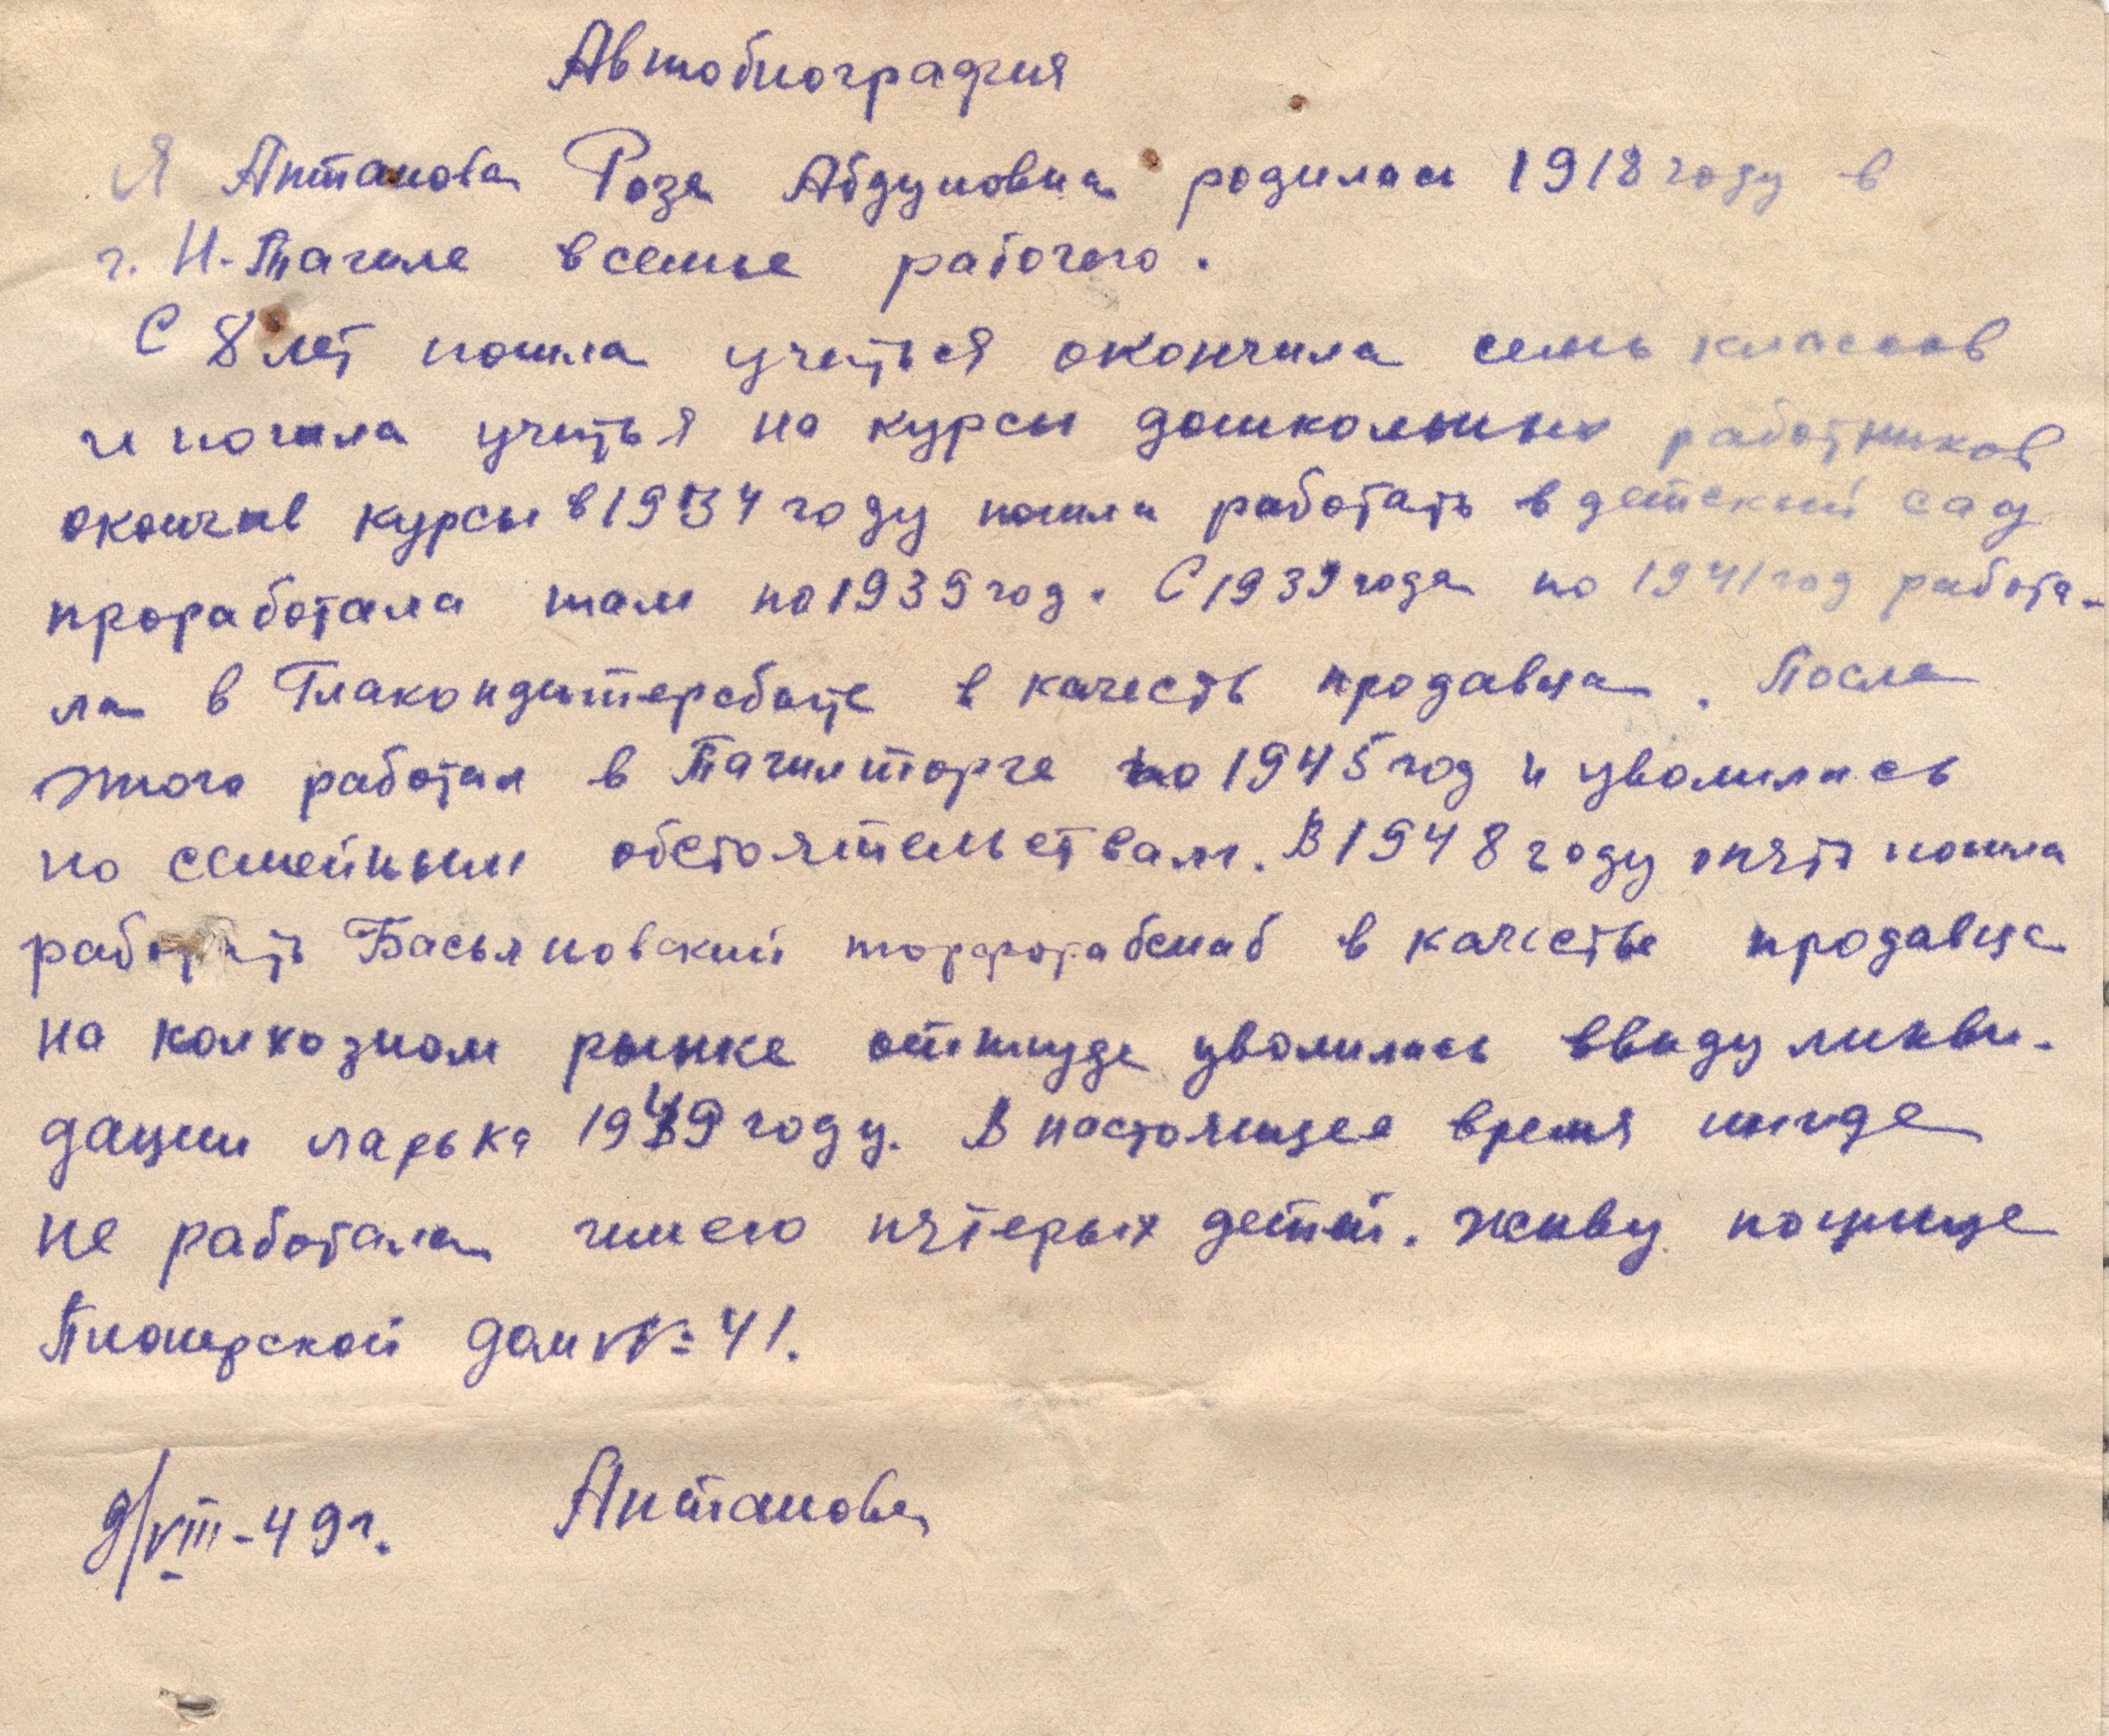 Автобиография
Я Антанова Роза Абдуновна родилась 1918 году в
г. Н-Тагиле в семье рабочего.
С 8 лет пошла учиться окончила семь классов
и пошла учиться на курсы дошкольных работников
окончив курсы в 1934 году пошла работать в детский сад
проработала там по 1939 год. С 1939 года по 1941 год работа-
ла в Глакондитерсбыте в качесть продавца. После
этого работал в Тагилторге по 1945 год и уволилась
по семейным обстоятельствам. В 1948 году опять пошла
работать Басьяновский торфорабснаб в качестве продавца
на колхозном рынке откуда уволилась ввиду ликви-
дации ларька 1949 году. В настоящее время нигде
не работала имею пятерых детей. Живу по улице
Пионерской дом № 41.
9/VIII-49г. Антанова